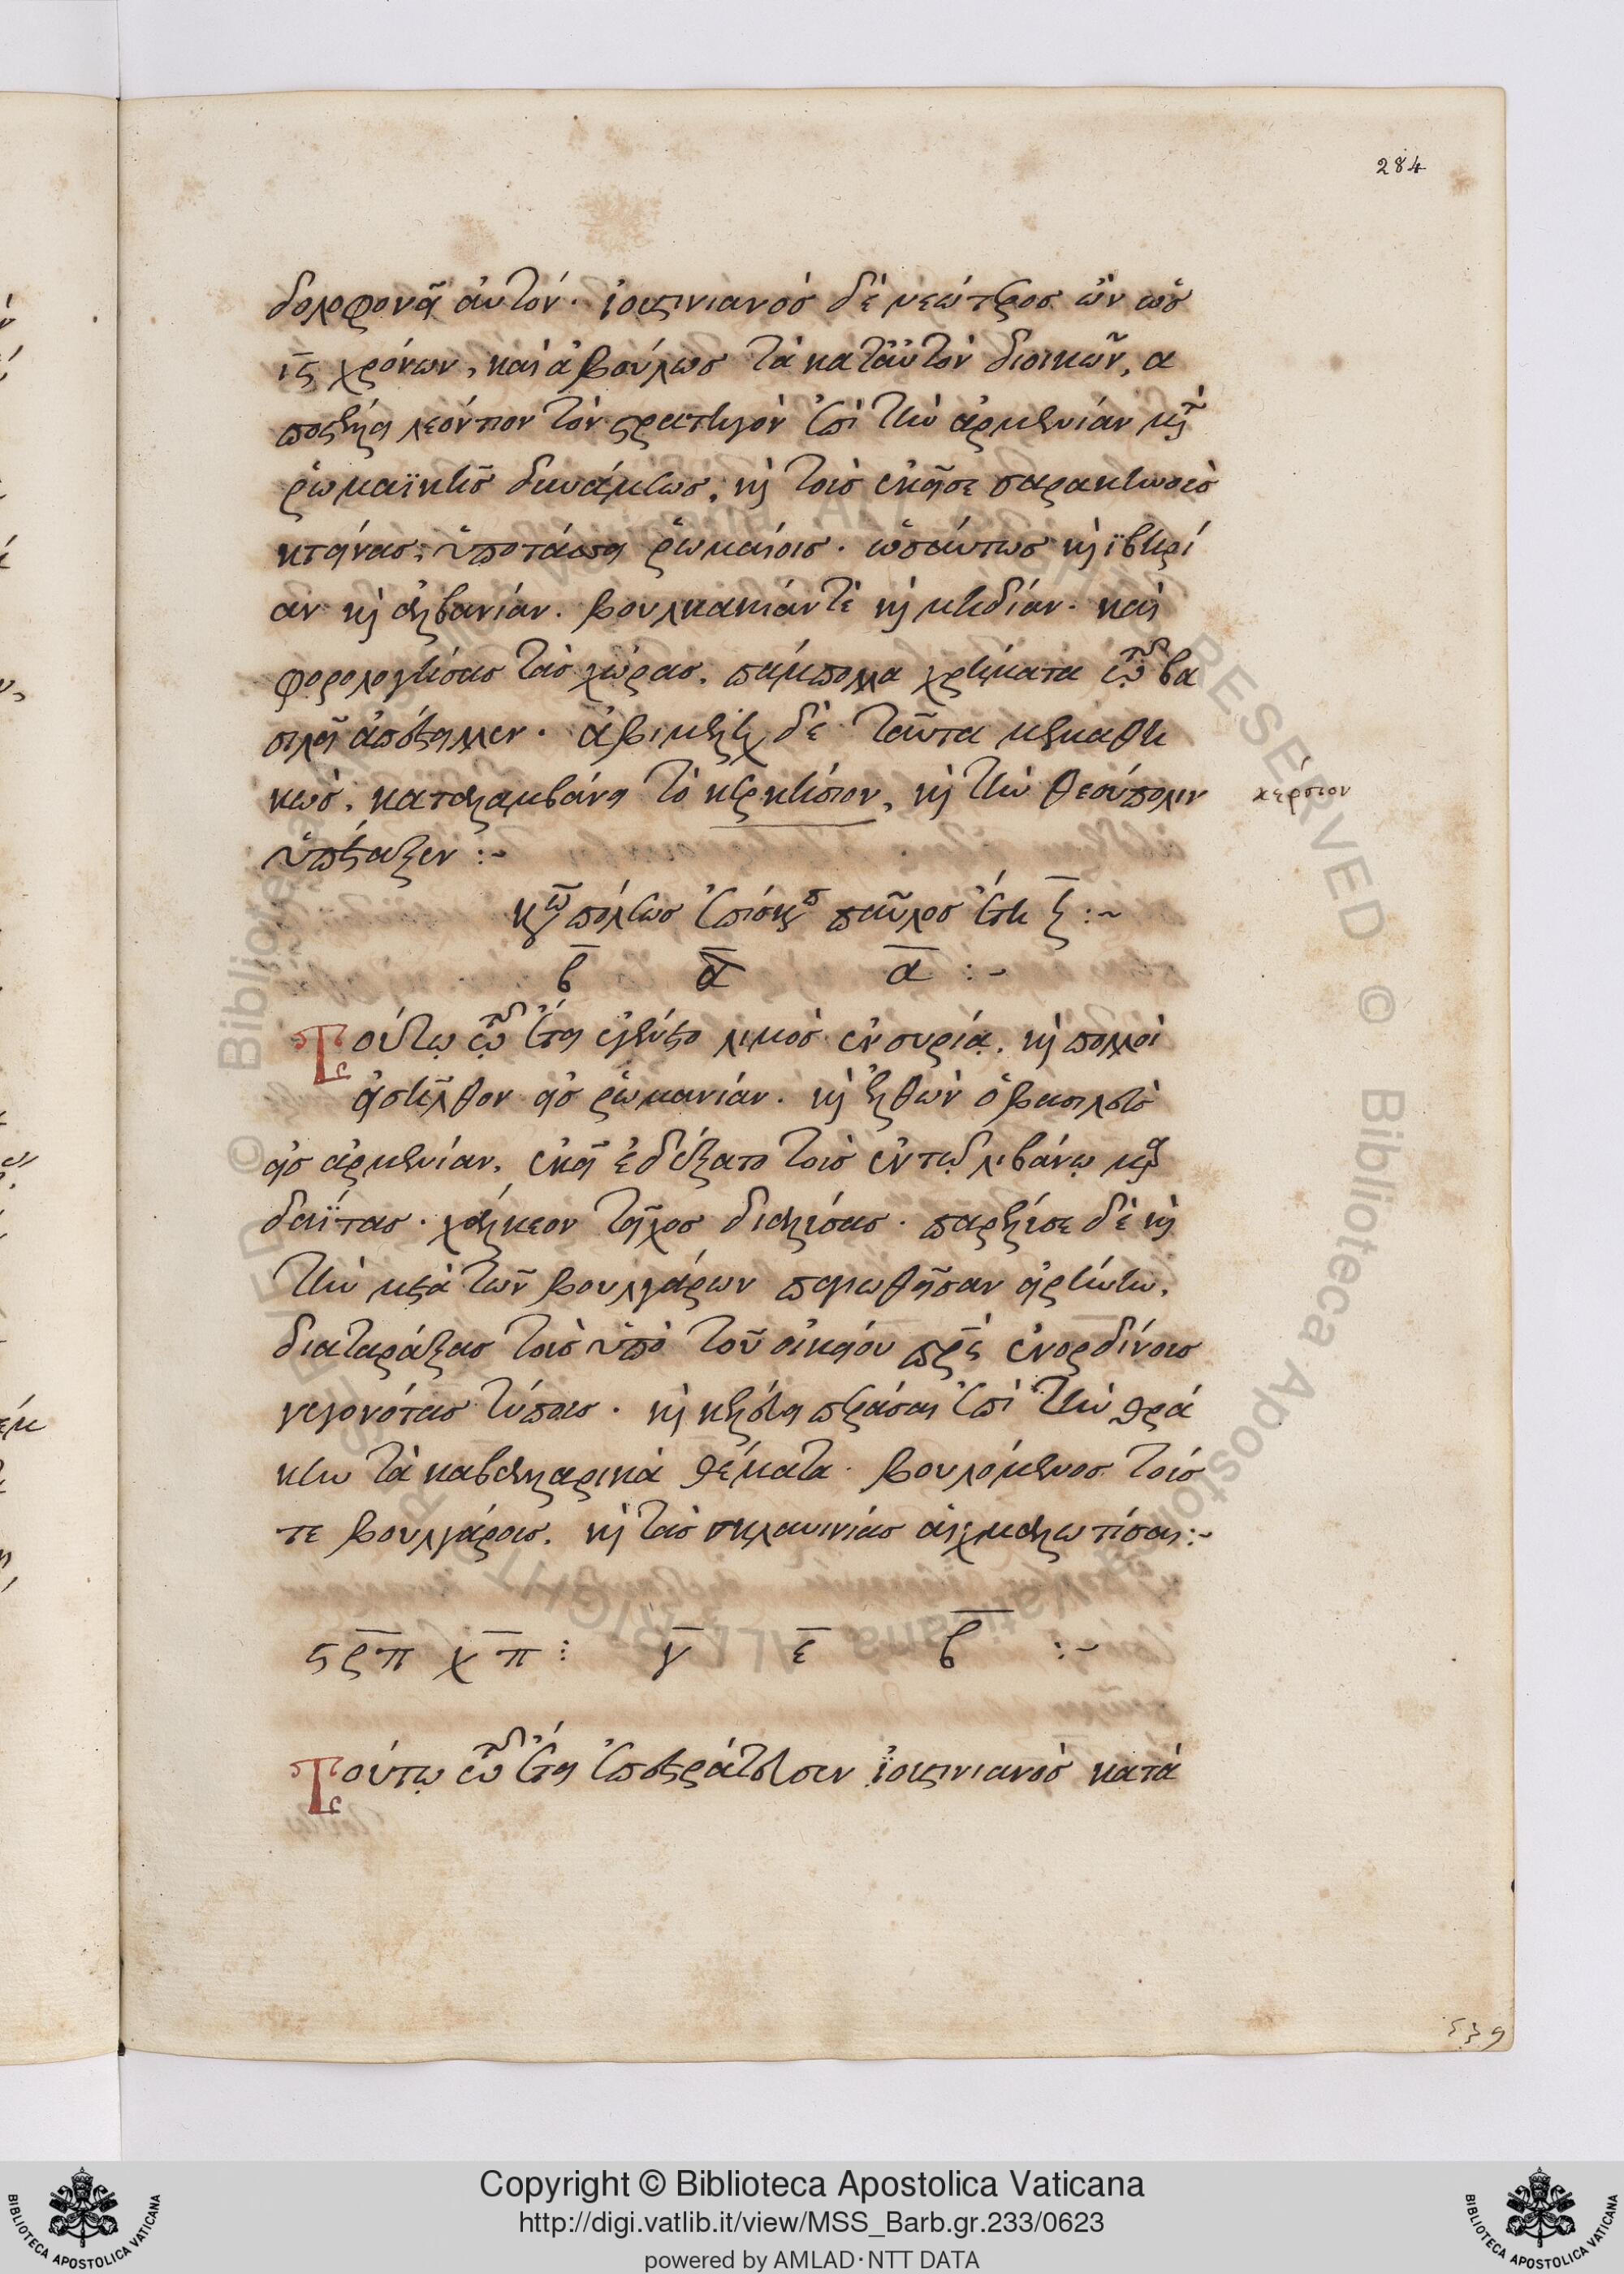 284
δολοφονεῖ αὐτόν· ἰουστινιανὸς δὲ νεώτερος ὢν ὡς
ις χρόνων, καὶ ἀβούλως τὰ κατ' αὐτὸν διοικῶν, ἀ
ποστέλλει λεόντιον τὸν στρατηγὸν ἐπὶ τὴν ἀρμενίαν μετὰ
ῥωμαϊκῆς δυνάμεως, καὶ τοὺς ἐκεῖσε σαρακηνοὺς
κτείνας, ὑποτάσσει ῥωμαίοις· ὡσαύτως καὶ ἰβηρί
αν καὶ ἀλβανίαν. βουλκακίαν τὲ καὶ μηδίαν· καὶ
φορολογήσας τὰς χώρας, πάμπολλα χρήματα τῷ βα
σιλεῖ ἀπέστειλεν· ἀβιμέλεχ δὲ ταῦτα μεμαθη
κὼς, καταλαμβάνει τὸ κιρκήσιον, καὶ τὴν θεούπολιν
ὑπέταξεν :~
κέρσιον
κων πόλεως ἐπίσκοπ παῦλος ἔτη ζ :~
β α α :~
Τούτῳ τῷ ἔτει ἐγένετο λιμὸς ἐν συρίᾳ. καὶ πολλοὶ
εἰσῆλθον εἰς ῥωμανίαν. καὶ ἐλθὼν ὁ βασιλεὺς
εἰς ἀρμενίαν, ἐκεῖ ἐδέξατο τοὺς ἐν τῷ λιβάνῳ μαρ
δαΐτας· χάλκεον τεῖχος διαλύσας· παρέλυσε δὲ καὶ
τὴν μετὰ τῶν βουλγάρων παγιωθεῖσαν εἰρήνην,
διαταράξας τοὺς ὑπὸ τοῦ οἰκείου πρς ἐνορδίνους
γεγονότας τύπους· καὶ κελεύει περάσαι ἐπὶ τὴν θρά
κην τὰ καβαλλαρικὰ θέματα· βουλόμενος τούς
τε βουλγάρους. καὶ τὰς σκλαυινίας αἰχμαλωτίσαι :~
ςρπ χπ : γ ε β :~
Τούτῳ τῷ ἔτει ἐπεστράτευσεν ἰουστινιανὸς κατὰ
539
Copyright © Biblioteca Apostolica Vaticana
http://digi.vatlib.it/view/MSS_Barb.gr.233/0623
powered by AMLAD·NTT DATA